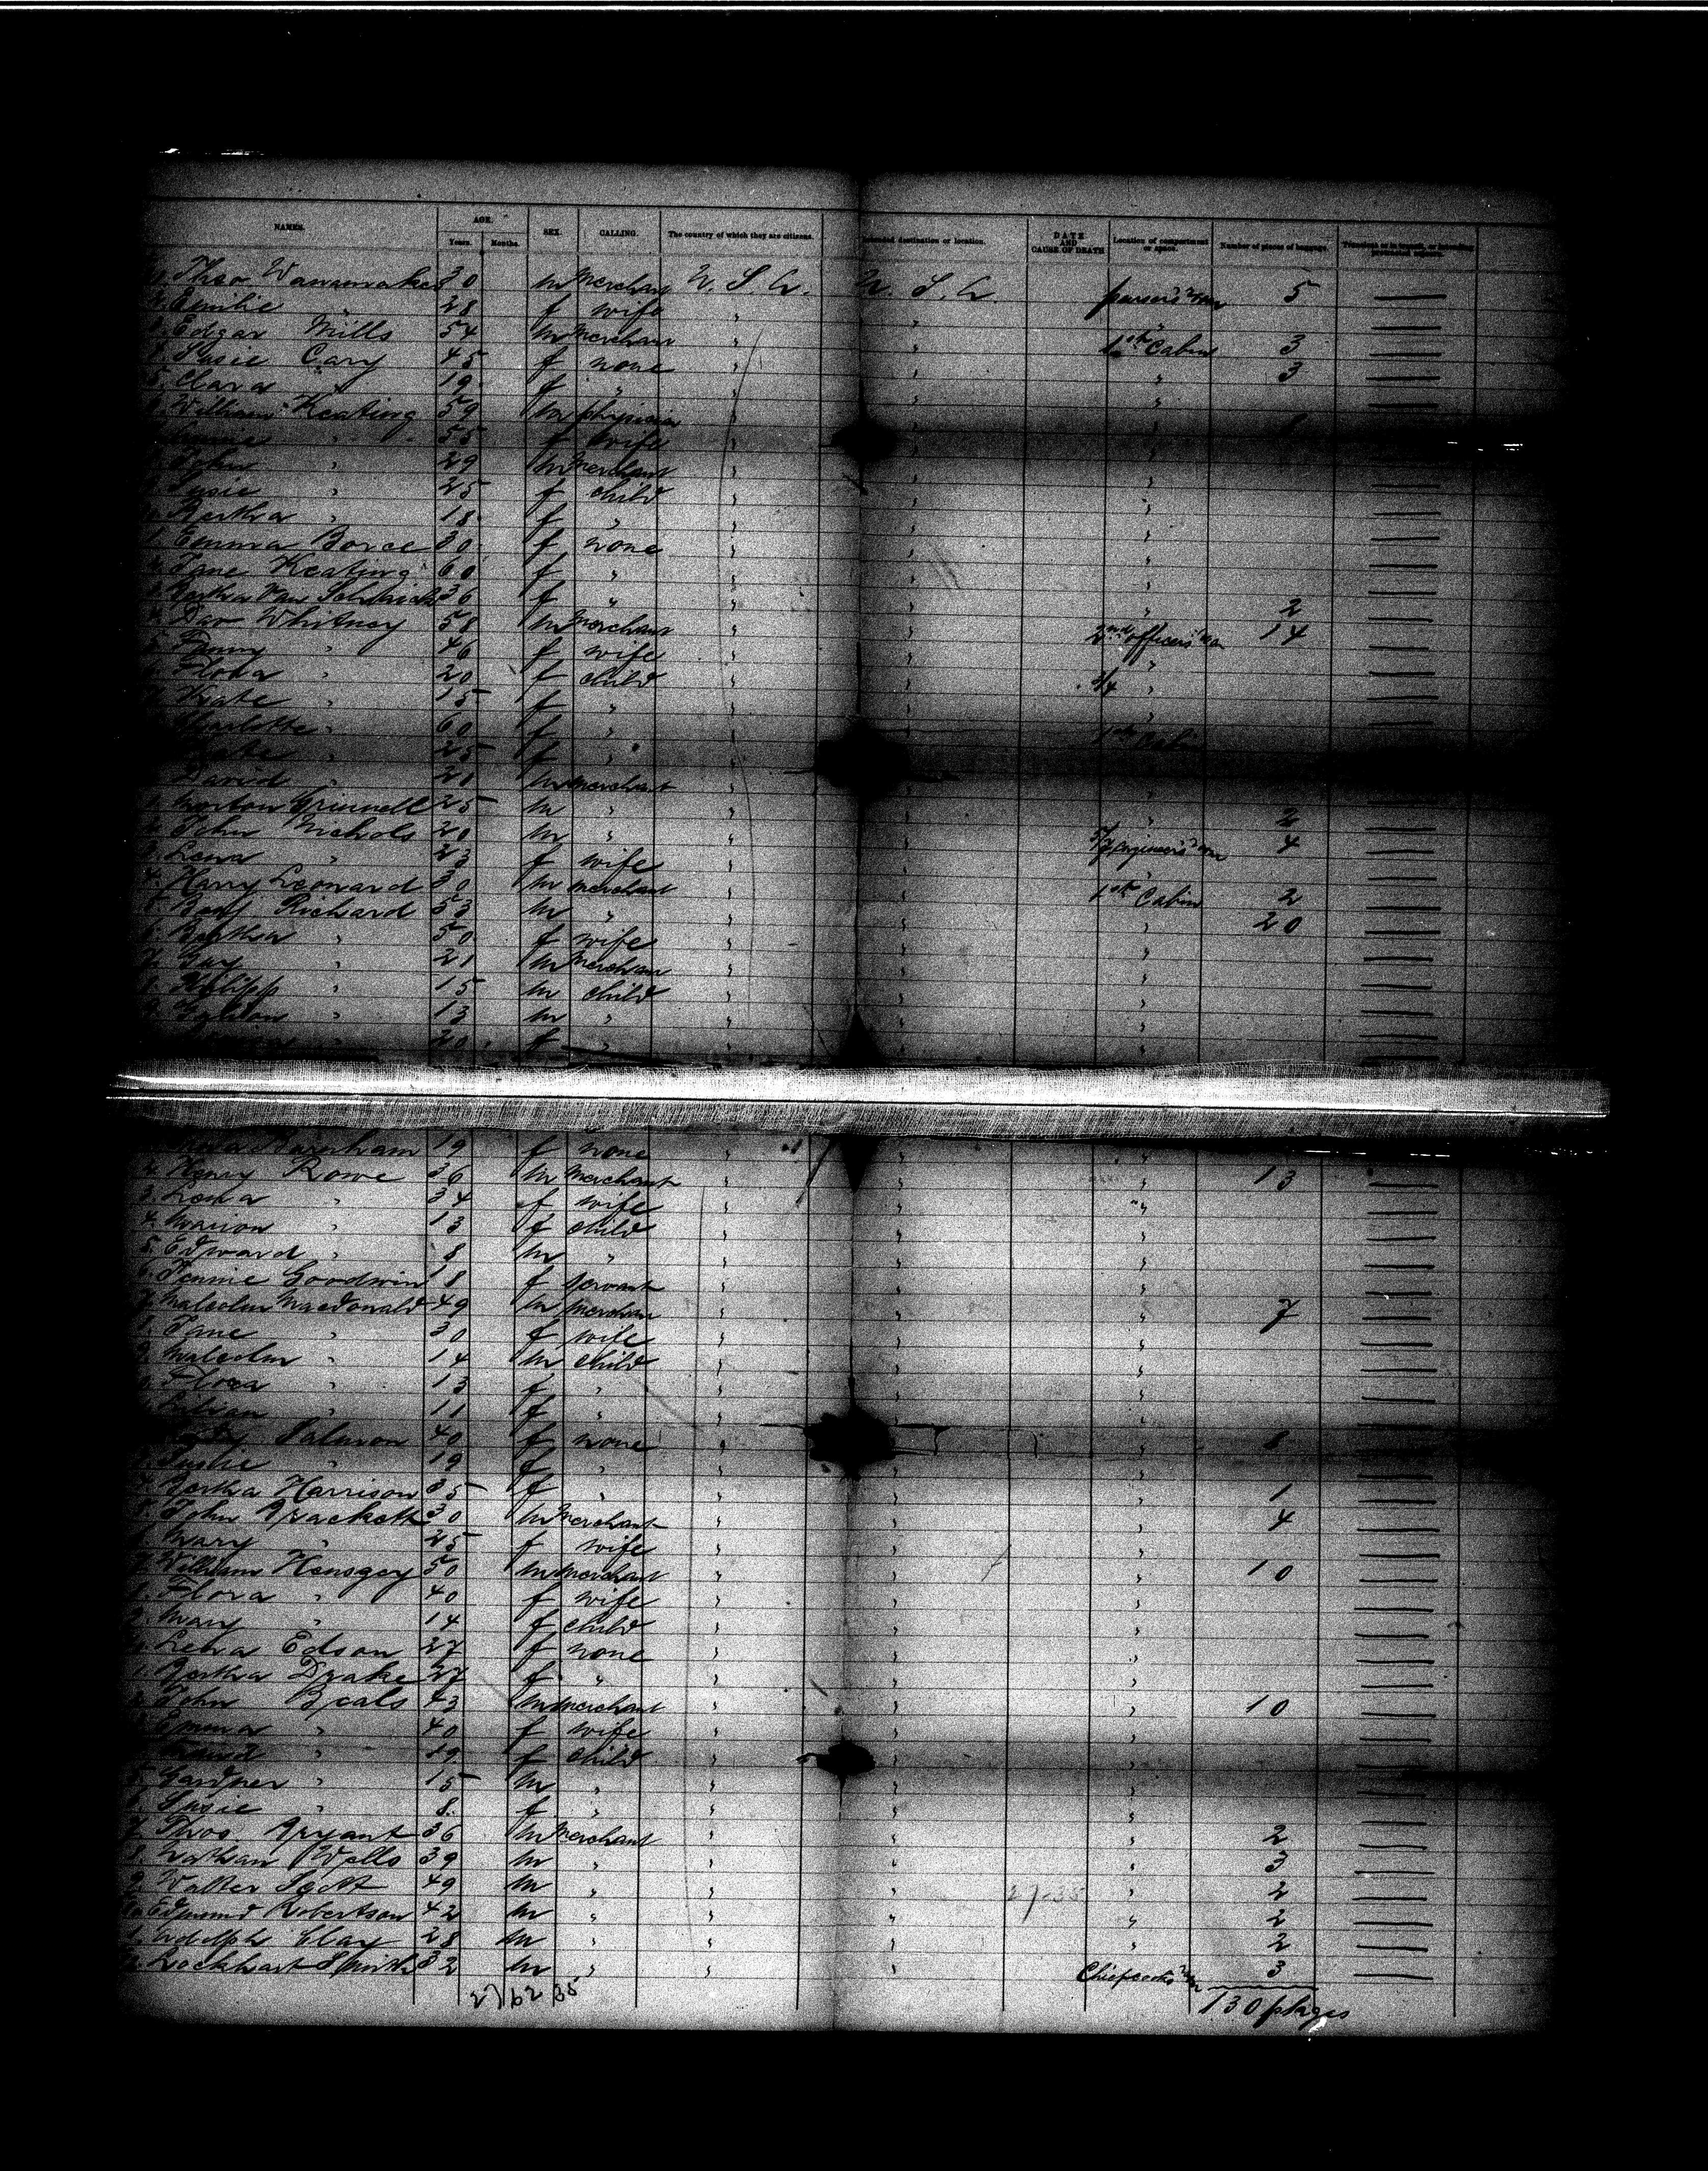 NAMES. AGE. Years. Months. SEX. CALLING. The country of which they are citizens. Intended destination or location. DATE AND CAUSE OF DEATH Location of compartment or space. Number of pieces of baggage. Transient or in transit, or intending protracted sojourn.
Theo Wanamaker 30 m merchant U. S. A. U. S. A. purser's room 5 —
2. Emilie 28 f wife " " "
3. Edgar Mills 54 m merchant " " 1st Cabin 3 —
4. Susie Cary 45 f none " " " 3 —
5. Clara " 19 f " " " " —
6. William Keating 59 m physician " " "
" 55 f wife " " "
John " 29 m merchant " " " —
Susie " 25 f child " " " —
Bertha " 18 f " " " " —
1. Emma 30 f none " " " —
2. Jane Keating 60 f " " " " —
3. Bertha Van 36 f " " " " 2 —
4. Dav Whitney 58 m merchant " " 2nd officers' 14 —
5. Fanny " 46 f wife " " " —
6. Flora " 20 f child " " " —
7. Kate " 15 f " " " " —
Charlotte " 60 f " " " 1st Cabin
" 25 f " " "
David " 21 m merchant " " " —
1. Morton Grinnell 25 m " " " " 2 —
2. John Nichols 20 m " " " engineer's 4 —
3. Lena " 23 f wife " " " —
4. Harry Leonard 30 m merchant " " 1st Cabin 2 —
5. Benj Richard 53 m " " " " 20 —
6. Bertha " 50 f wife " " " —
7. " 21 m merchant " " " —
8. Philipp " 15 m child " " " —
9. " 13 m " " " " —
" 20 f " " " " —
Farnham 19 f none " " "
2. Henry Rowe 36 m merchant " " " 13 —
3. Lena " 34 f wife " " " —
4. Marion " 13 f child " " " —
5. Edward " 8 m " " " " —
6. Jennie Goodwin 18 f servant " " " —
7. Malcolm Macdonald 49 m merchant " " " 7 —
8. Jane " 30 f wife " " " —
9. Malcolm " 14 m child " " " —
Flora " 13 f " " " " —
Lilian " 11 f " " " "
Salomon 40 f none " " " 8 —
" 19 f " " " "
4. Bertha Harrison 35 f " " " " 1 —
5. John Brackett 30 m merchant " " " 4 —
6. Mary " 25 f wife " " " —
7. William 50 m merchant " " " 10 —
8. Flora " 40 f wife " " " —
9. Mary " 14 f child " " " —
Lena Edson 27 f none " " " —
1. Bertha Drake 27 f " " " " —
2. John Beals 43 m merchant " " " 10 —
3. Emma " 40 f wife " " " —
" 19 f child " " "
5. Gardner " 15 m " " " " —
6. Susie " 8 f " " " " —
7. Thos Bryant 36 m merchant " " " 2 —
8. Nathan Wells 39 m " " " " 3 —
9. Walter Scott 49 m " " " " 2 —
Edmund Robertson 42 m " " " " 2 —
1. Adolph Clay 28 m " " " " 2 —
2. Lockhart Smith 32 m " " " Chiefcooks' room 3 —
27 62 35 130 pkges